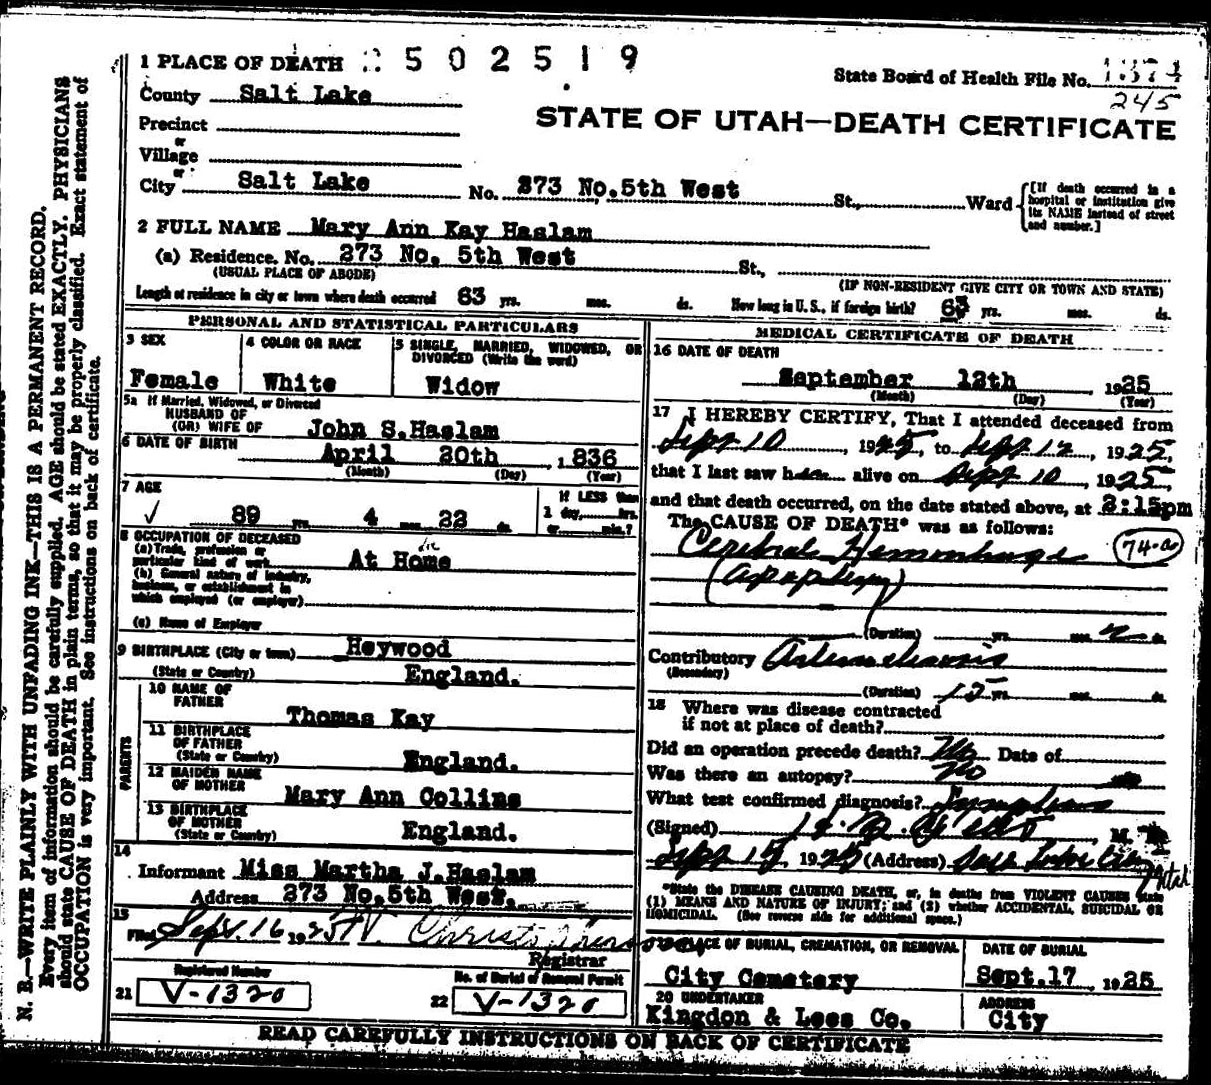 N. B.—WRITE PLAINLY WITH UNFADING INK—THIS IS A PERMANENT RECORD.
Every item of information should be carefully supplied. AGE should be stated EXACTLY. PHYSICIANS
should state CAUSE OF DEATH in plain terms, so that it may be properly classified. Exact statement of
OCCUPATION is very important. See instructions on back of certificate.
1 PLACE OF DEATH 2502519
State Board of Health File No. 1374
245
County Salt Lake
STATE OF UTAH—DEATH CERTIFICATE
Precinct
or
Village
or
City Salt Lake No. 273 No.5th West St., Ward
[If death occurred in a
hospital or institution give
its NAME instead of street
and number.]
2 FULL NAME Mary Ann Kay Haslam
(a) Residence. No. 273 No. 5th West St.,
(USUAL PLACE OF ABODE) (IF NON-RESIDENT GIVE CITY OR TOWN AND STATE)
Length of residence in city or town where death occurred 63 yrs. mos. ds. How long in U.S., if foreign birth? 63 yrs. mos. ds.
PERSONAL AND STATISTICAL PARTICULARS
3 SEX
Female
4 COLOR OR RACE
White
5 SINGLE, MARRIED, WIDOWED, OR
DIVORCED (Write the word)
Widow
5a If Married, Widowed, or Divorced
HUSBAND OF
(OR) WIFE OF John S.Haslam
6 DATE OF BIRTH April 20th, 1836
(Month) (Day) (Year)
7 AGE
89 yrs. 4 mos. 22 ds.
If LESS than
1 day, hrs.
or min.?
8 OCCUPATION OF DECEASED
(a) Trade, profession or
particular kind of work At Home
(b) General nature of industry,
business, or establishment in
which employed (or employer)
(c) Name of Employer
9 BIRTHPLACE (City or town) Heywood
(State or Country) England.
PARENTS
10 NAME OF
FATHER Thomas Kay
11 BIRTHPLACE
OF FATHER
(State or Country) England.
12 MAIDEN NAME
OF MOTHER Mary Ann Collins
13 BIRTHPLACE
OF MOTHER
(State or Country) England.
14
Informant Miss Martha J.Haslam
Address 273 No.5th West.
15
Filed Sept. 16 1925
Registrar
Registered Number
21 V-1320
No. of Burial or Removal Permit
22 V-1320
MEDICAL CERTIFICATE OF DEATH
16 DATE OF DEATH
September 12th 1925
(Month) (Day) (Year)
17 I HEREBY CERTIFY, That I attended deceased from
Sept 10, 1925, to Sept 12, 1925,
that I last saw her alive on Sept 10, 1925,
and that death occurred, on the date stated above, at 2:15pm
The CAUSE OF DEATH* was as follows:
Cerebral Hemorrhage 74-a
(Apoplexy)
(Duration) yrs. mos. 2 ds.
Contributory Arteriosclerosis
(Secondary)
(Duration) 15 yrs. mos. ds.
18 Where was disease contracted
if not at place of death?
Did an operation precede death? No Date of
Was there an autopsy? No
What test confirmed diagnosis? Symptoms
(Signed) M.
Sept 15, 1925 (Address) Salt Lake City
Utah
*State the DISEASE CAUSING DEATH, or, in deaths from VIOLENT CAUSES state
(1) MEANS AND NATURE OF INJURY; and (2) whether ACCIDENTAL, SUICIDAL OR
HOMICIDAL. (See reverse side for additional space.)
PLACE OF BURIAL, CREMATION, OR REMOVAL
City Cemetery
DATE OF BURIAL
Sept.17, 1925
20 UNDERTAKER
Kingdon & Lees Co.
ADDRESS
City
READ CAREFULLY INSTRUCTIONS ON BACK OF CERTIFICATE